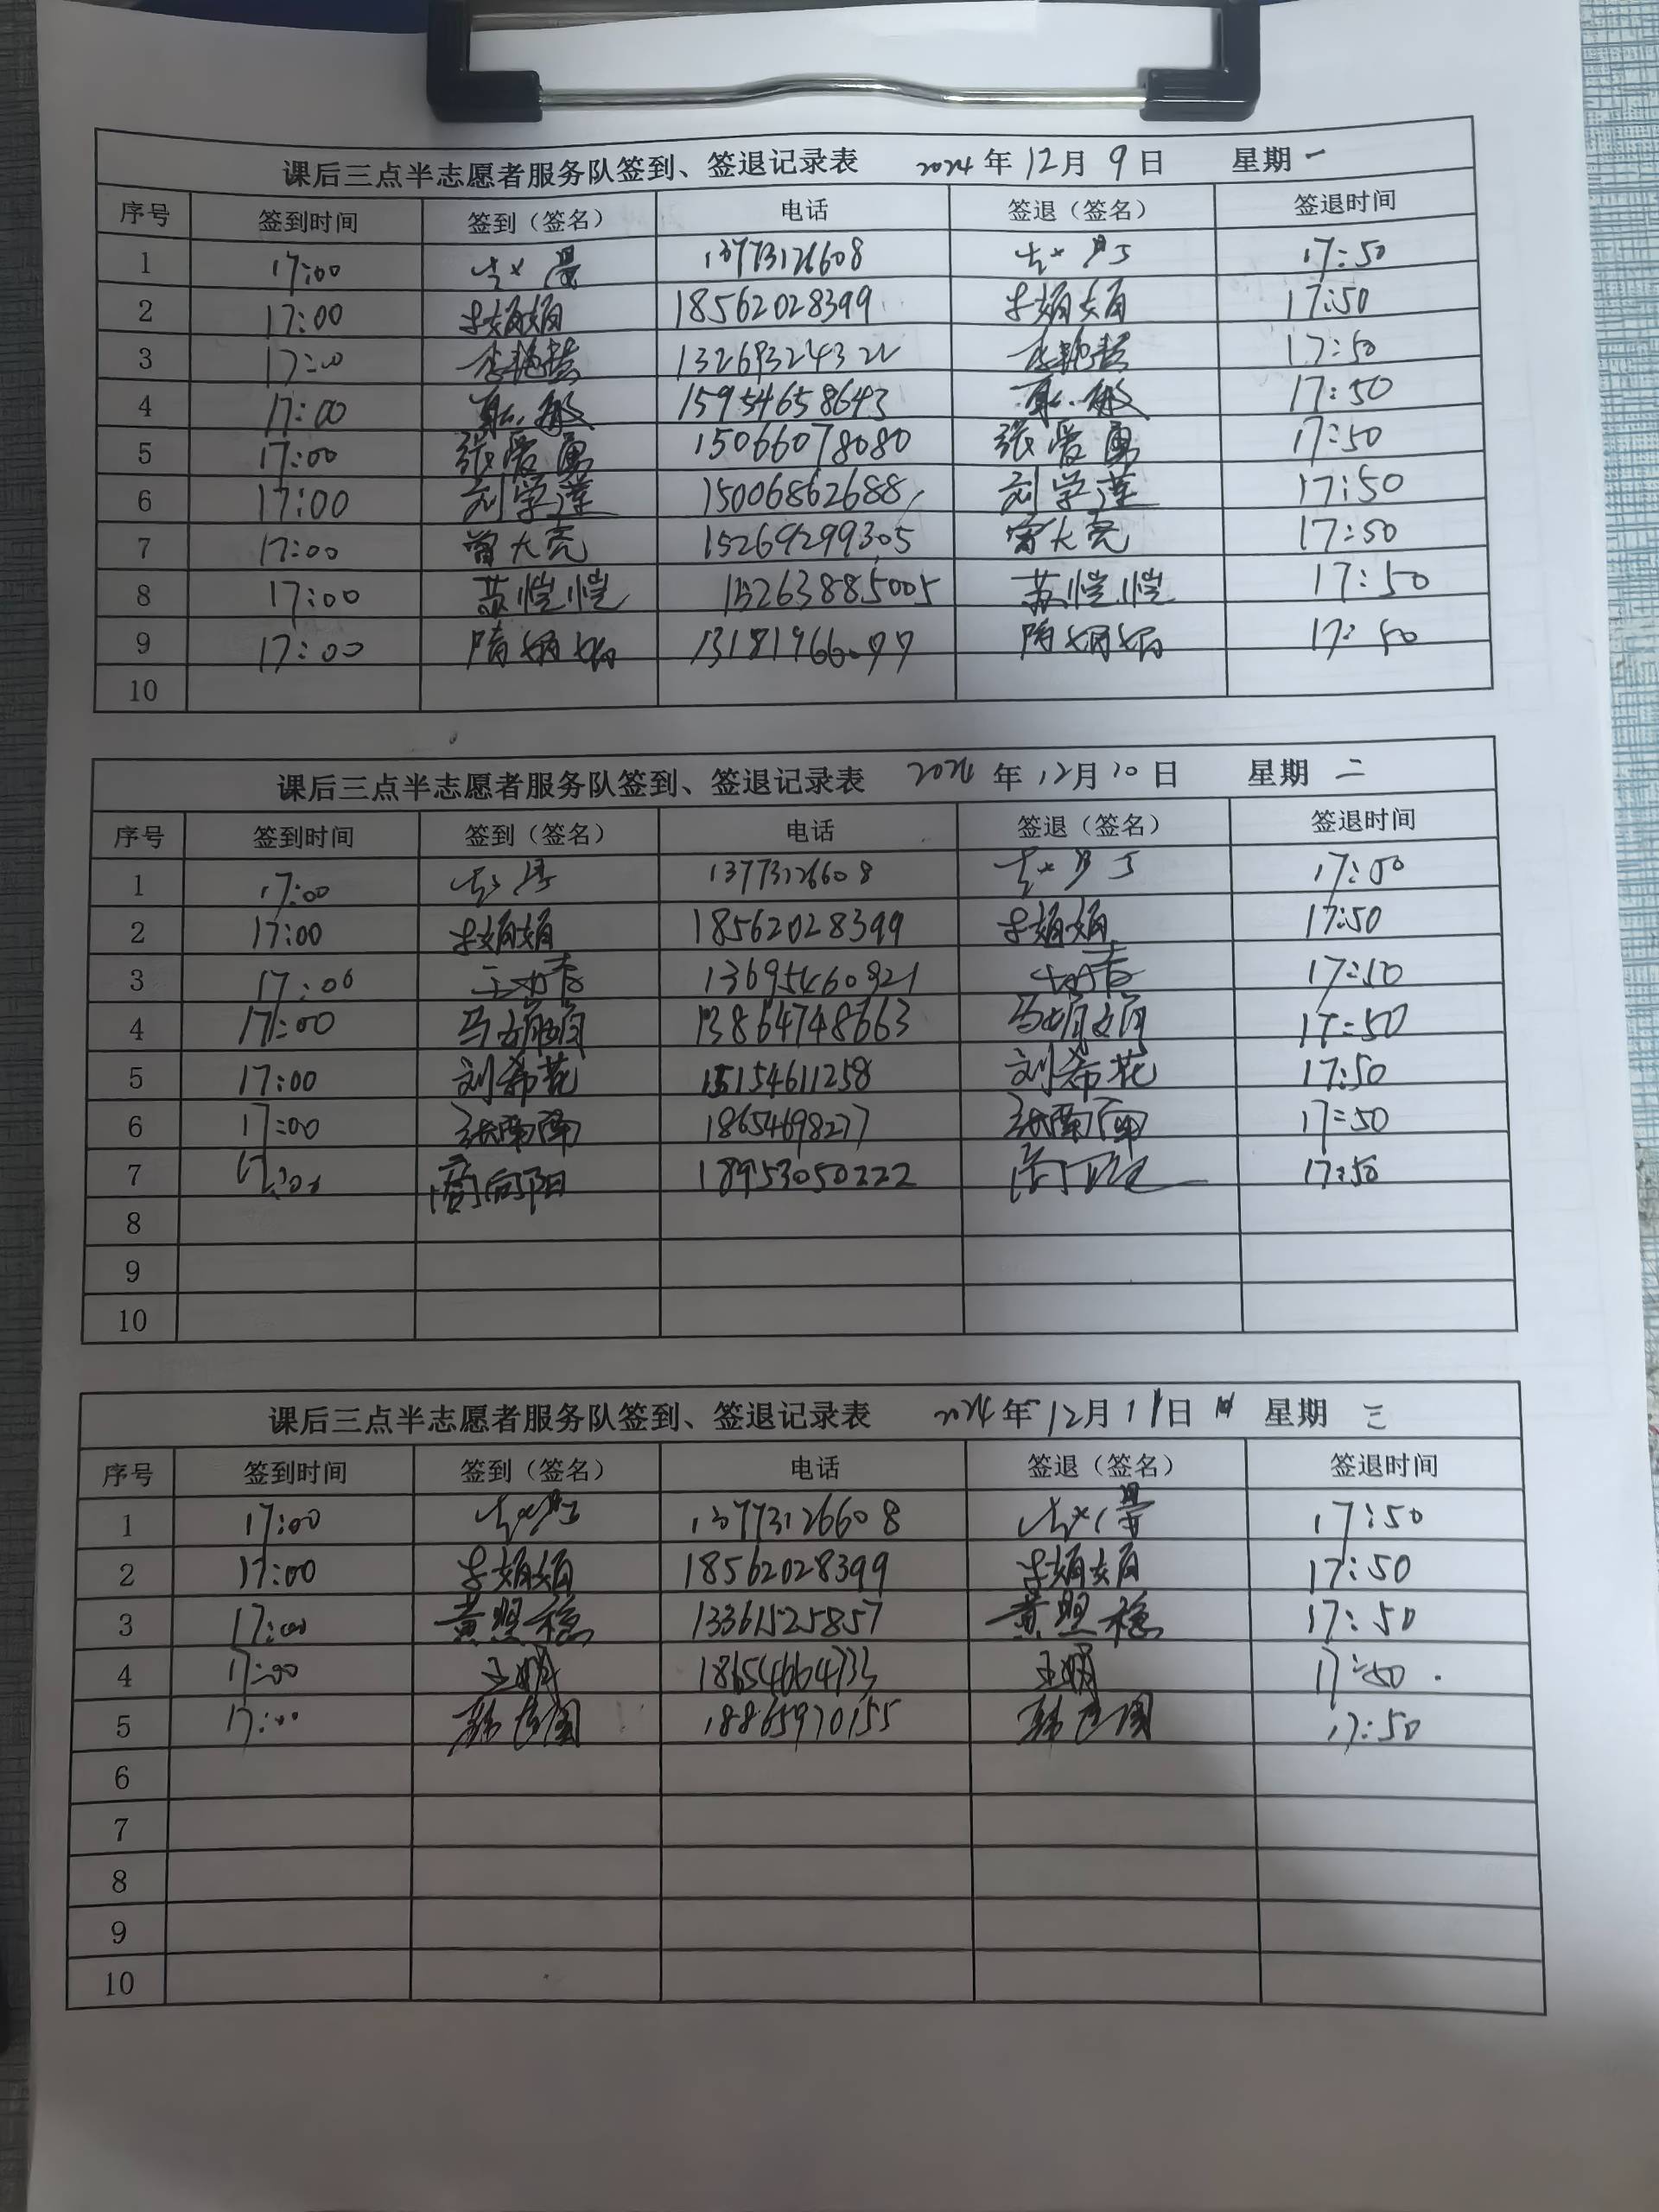 课后三点半志愿者服务队签到、签退记录表 2024年12月9日 星期一
序号 签到时间 签到（签名） 电话 签退（签名） 签退时间
1 17:00 13773126608 17:50
2 17:00 李娟娟 18562028399 李娟娟 17:50
3 17:00 李艳慧 李艳慧 17:50
4 17:00 敏 15954658643 敏 17:50
5 17:00 张爱勇 15066078080 张爱勇 17:50
6 17:00 刘学莲 15006862688 刘学莲 17:50
7 17:00 曾大亮 15269299305 曾大亮 17:50
8 17:00 苏恺恺 15263885005 苏恺恺 17:50
9 17:00 隋娟娟 隋娟娟 17:50
10
课后三点半志愿者服务队签到、签退记录表 2024年12月10日 星期二
序号 签到时间 签到（签名） 电话 签退（签名） 签退时间
1 17:00 13773126608 17:50
2 17:00 李娟娟 18562028399 李娟娟 17:50
3 17:00 13695460921 17:50
4 17:00 马娟娟 13864748663 马娟娟 17:50
5 17:00 刘希花 15154611258 刘希花 17:50
6 17:00 张南南 18654698277 张南南 17:50
7 17:00 商向阳 18953050222 17:50
8
9
10
课后三点半志愿者服务队签到、签退记录表 2024年12月11日 星期三
序号 签到时间 签到（签名） 电话 签退（签名） 签退时间
1 17:00 13773126608 17:50
2 17:00 李娟娟 18562028399 李娟娟 17:50
3 17:00 黄照稳 13361525857 黄照稳 17:50
4 17:00 王娟 18654664733 王娟 17:50
5 17:00 18865970155 17:50
6
7
8
9
10